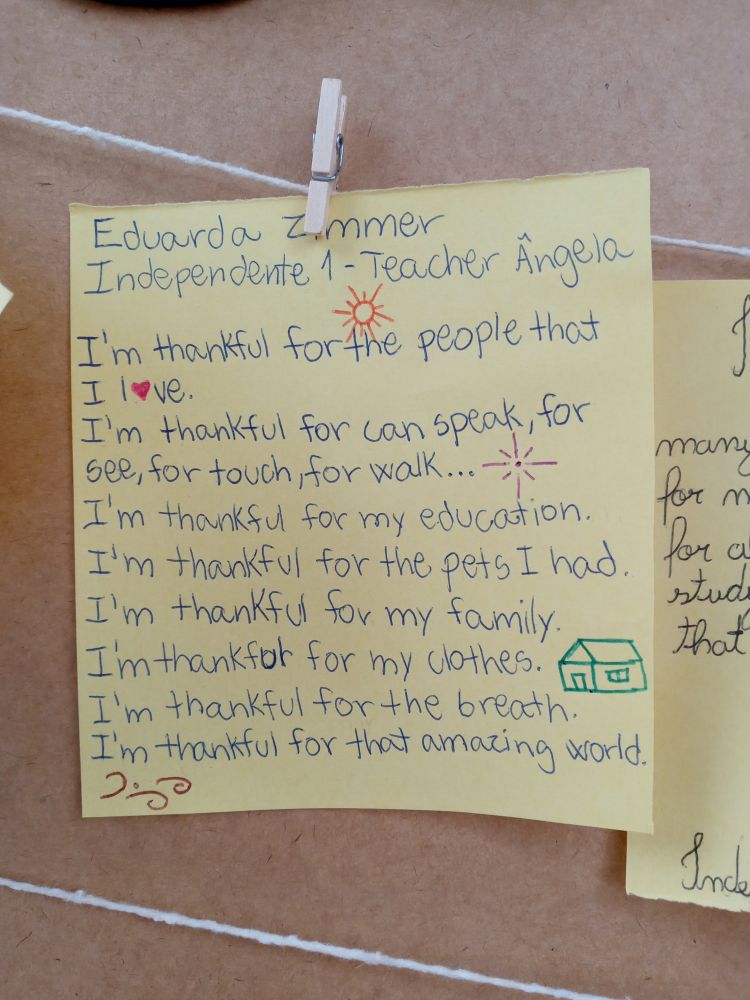 Eduarda Zimmer
Independente 1 - Teacher Ângela
I'm thankful for the people that
I l♥ve.
I'm thankful for can speak, for
see, for touch, for walk...
I'm thankful for my education.
I'm thankful for the pets I had.
I'm thankful for my family.
I'm thankful for my clothes.
I'm thankful for the breath.
I'm thankful for that amazing world.
many
for
for
that